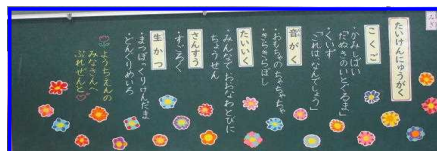 たいけんにゅうがく
こくご
・かみしばい
「たぬきのいとぐるま」
・くいず
「これは、なんでしょう」
音がく
・おもちゃのちゃちゃちゃ
・きらきらぼし
たいいく
・みんなで おおなわとびに
ちょうせん
さんすう
・すごろく
生かつ
・まつぼっくりけんだま
・どんぐりめいろ
ようちえんの
みなさんへ
ぷれぜんと